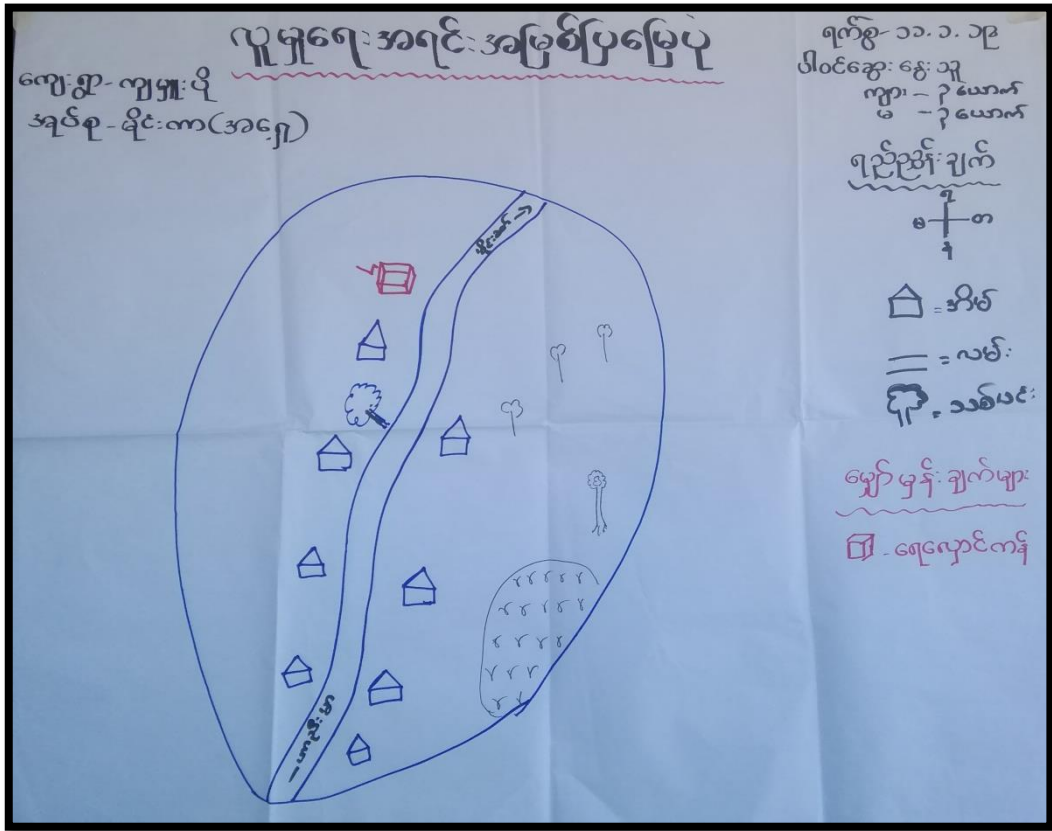 လူမှုရေးအရင်းအမြစ်ပြမြေပုံ
ကျေးရွာ - ကျမှူးပို
အုပ်စု - မိုင်းကာ (အရှေ့)
ရက်စွဲ - ၁၁.၁.၁၉
ပါဝင်ဆွေးနွေးသူ
ကျား - ၃ ယောက်
မ - ၃ ယောက်
ရည်ညွှန်းချက်
= အိမ်
= လမ်း
= သစ်ပင်
မျှော်မှန်းချက်များ
- ရေလှောင်ကန်